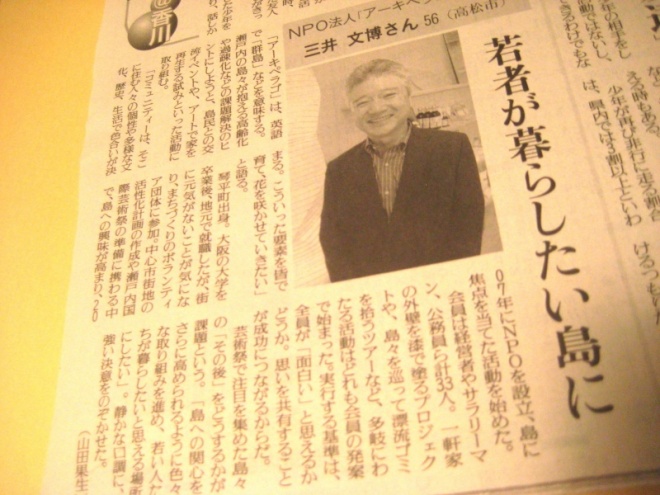 若者が暮らしたい島に
NPO法人「アーキペラゴ」
三井 文博さん 56(高松市)
「アーキペラゴ」は、英語
で「群島」などを意味する。
瀬戸内の島々が抱える高齢化
や過疎化などの課題解決のヒ
ントにしようと、島民との交
流イベントや、アートで家を
再生する試みといった活動に
取り組む。
「コミュニティーは、そこ
に住む人々の個性や多様な文
化、歴史、生活で色合いが決
まる。こういった要素を皆で
育て、花を咲かせていきたい」
と語る。
琴平町出身。大阪の大学を
卒業後、地元で就職したが、街
に元気がないことが気にな
り、まちづくりのボランティ
ア団体に参加。中心市街地の
活性化計画の作成や瀬戸内国
際芸術祭の準備に携わる中
で、島への興味が高まり、20
07年にNPOを設立、島に
焦点を当てた活動を始めた。
会員は経営者やサラリーマ
ン、公務員ら計33人。一軒家
の外壁を漆で塗るプロジェク
トや、島々を巡って漂流ゴミ
を拾うツアーなど、多岐にわ
たる活動はどれも会員の発案
で始まった。実行する基準は、
全員が「面白い」と思えるか
どうか。思いを共有すること
が成功につながるからだ。
芸術祭で注目を集めた島々
の「その後」をどうするかが
課題という。「島への関心を
さらに高められるように色々
な取り組みを進め、若い人た
ちが暮らしたいと思える場所
にしたい」。静かな口調に、
強い決意をのぞかせた。
(山田果生
香川